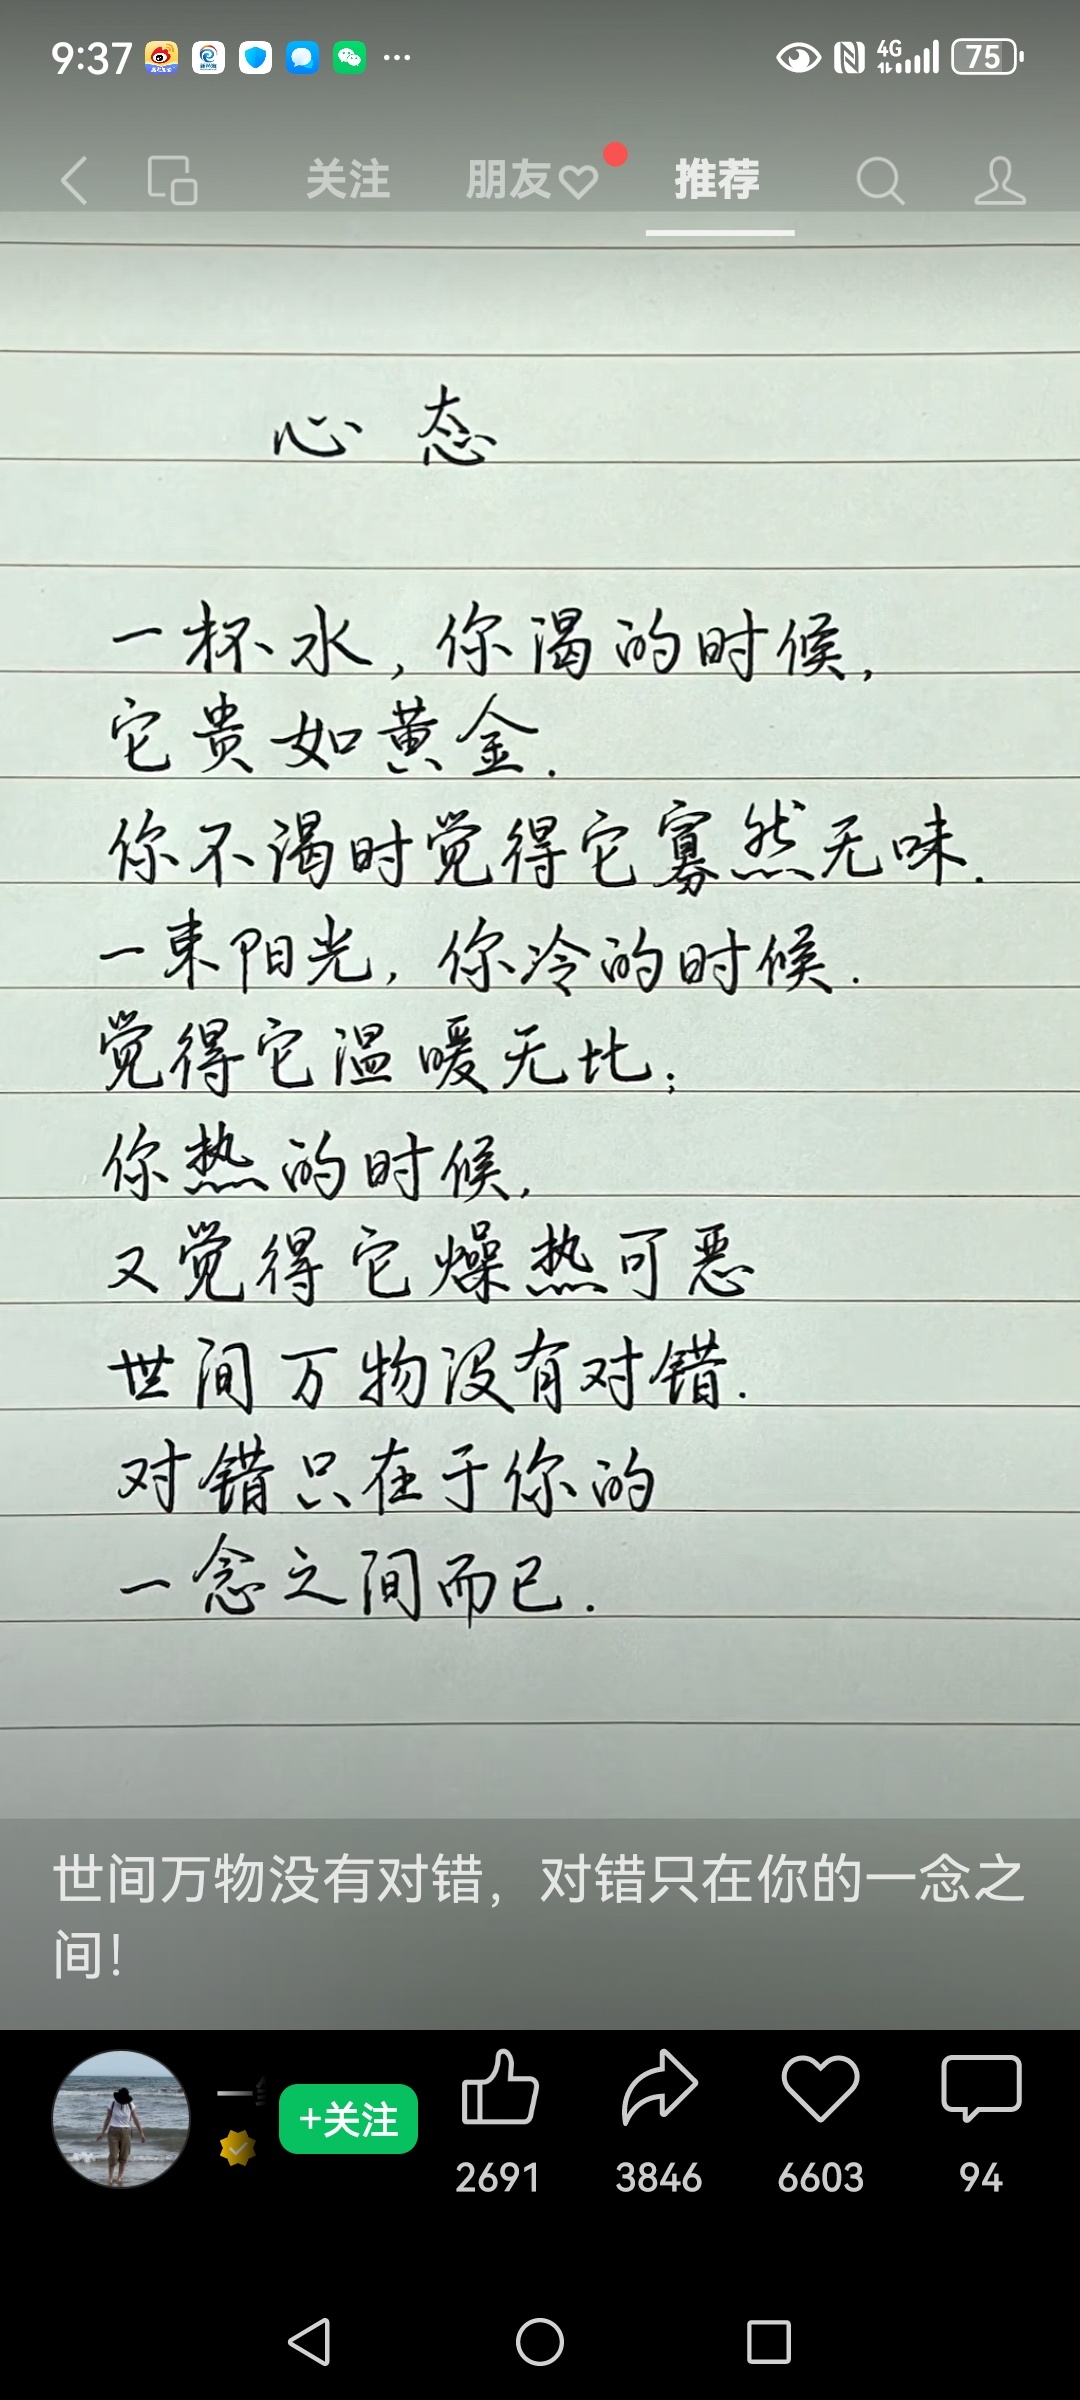 9:37
4G
75
关注
朋友
推荐
心态
一杯水,你渴的时候,
它贵如黄金.
你不渴时觉得它寡然无味.
一束阳光,你冷的时候.
觉得它温暖无比;
你热的时候,
又觉得它燥热可恶
世间万物没有对错.
对错只在于你的
一念之间而已.
世间万物没有对错，对错只在你的一念之
间！
+关注
2691
3846
6603
94